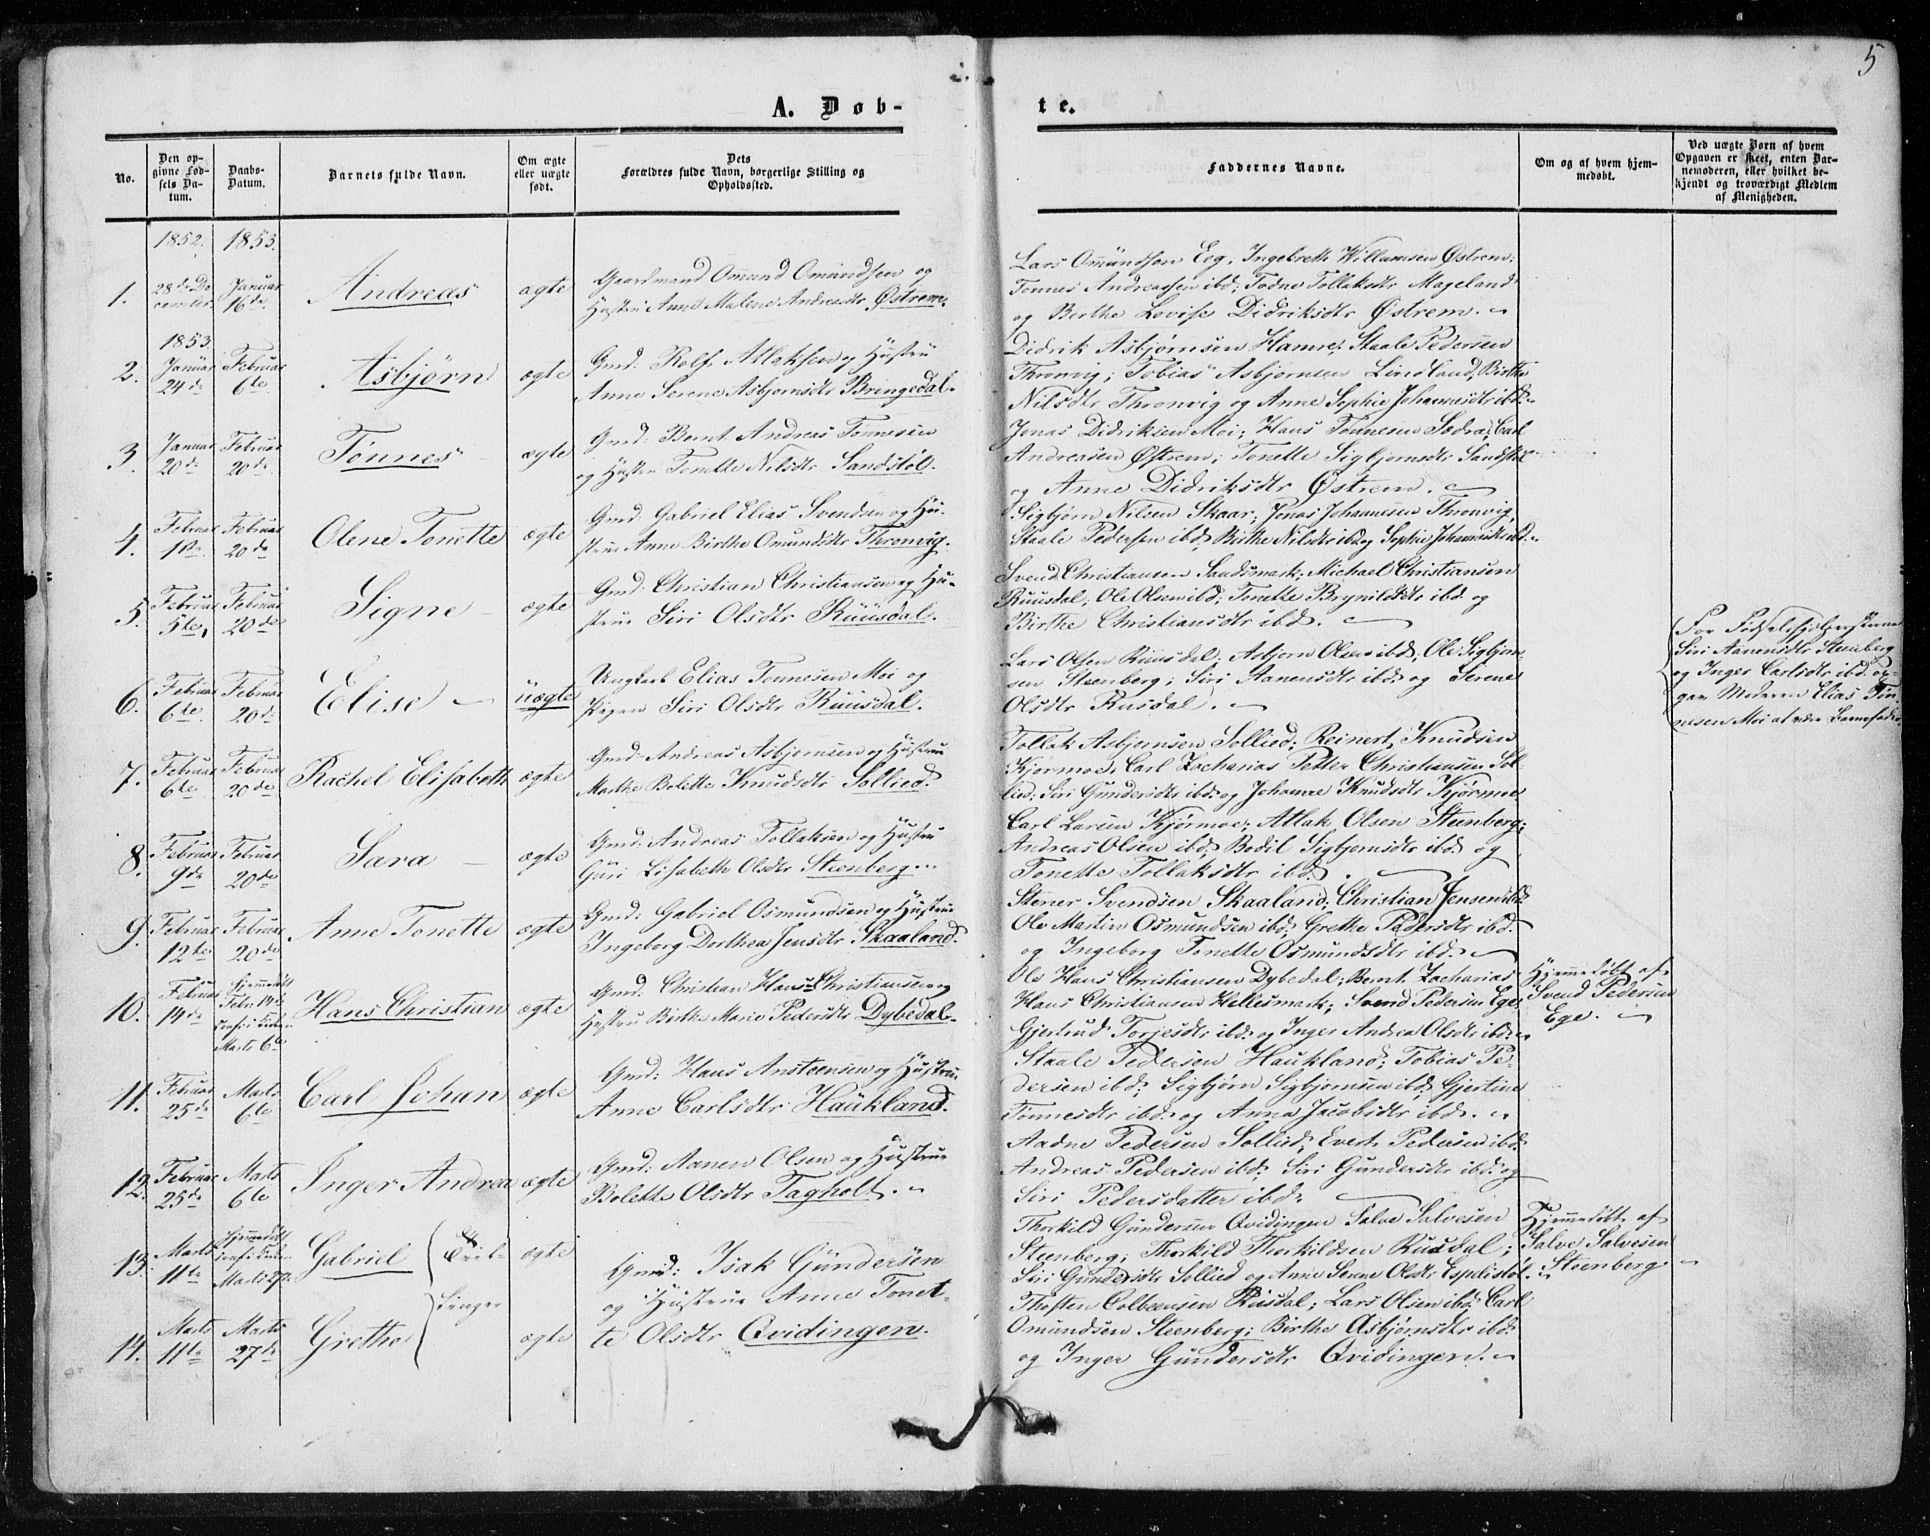 5
A. Døb-
te.
No.
Den op-
givne Fød-
sels Da-
tum.
Daabs-
Datum.
Barnets fulde Navn.
Om ægte
eller uægte
født.
Dets
Forældres fulde Navn, borgerlige Stilling og
Opholdssted.
Faddernes Navne.
Om og af hvem hjem-
medøbt.
Ved uægte Børn af hvem
Opgaven er skeet, enten Bar-
nemoderen, eller hvilket be-
kjendt og troværdigt Medlem
af Menigheden.
1852. 1853.
1. 28de De-
cember
Januar
16de
Andreas
ægte
Gaardmand Omund Omundsen og
Hustru Anne Malene Andreasdtr Østrem.
Lars Omundsen Eeg, Ingebreth Willumsen Østrem;
Tonnes Andreassen ibd; Todne Tollaksdtr Mageland
og Berthe Lovise Didriksdtr Østrem.
1853.
2. Januar
24de
Februar
6te
Asbjørn
ægte
Gmd: Rolf Atlaksen og Hustru
Anne Serene Asbjørnsdtr Bringedal.
Didrik Asbjørnsen Hamre, Staale Pedersen
Thronvig; Tobias Asbjørnsen Lindland, Birthe
Nilsdtr Thronvig og Anne Sophie Johannesdtr ibd.
3. Januar
20de
Februar
20de
Tønnes
ægte
Gmd: Bernt Andreas Tønnesen
og Hustru Tonette Nilsdtr Sandstøl.
Jonas Didriksen Moi; Hans Tønnesen Sædra; Carl
Andreasen Østrem; Tonette Sigbjørnsdtr Sandstøl
og Anne Didriksdtr Østrem.
4. Februar
1ste
Februar
20de
Olene Tonette
ægte
Gmd: Gabriel Elias Svendsen og Hu-
strue Anne Birthe Omundsdtr Thronvig.
Sigbjørn Nilsen Skaar; Jonas Johannesen Thronvig,
Staale Pedersen ibd; Birthe Nilsdtr ibd og Sophie Johannesdtr ibd.
5. Februar
5te
Februar
20de
Signe
ægte
Gmd: Christian Christiansen og Hu-
strue Siri Olsdtr Ruusdal.
Svend Christiansen Sandsmark; Michael Christiansen
Ruusdal; Ole Olsen ibd; Tonette Brynildsdtr ibd og
Birthe Christiansdtr ibd.
6. Februar
6te
Februar
20de
Elise
uægte
Ungkarl Elias Tønnesen Moi og
Pigen Siri Olsdtr Ruusdal.
Lars Olsen Ruusdal; Asbjørn Olsen ibd; Ole Sigbjørn-
sen Steenberg; Siri Aanensdtr ibd og Serene
Olsdtr Rusdal.
For Fødselshjelperskerne
Siri Aanensdtr Steenberg
og Inger Carlsdtr ibd op-
gav Moderen Elias Tøn-
nesen Moi at være Barnefader.
7. Februar
6te
Februar
20de
Rachel Elisabeth
ægte
Gmd: Andreas Asbjørnsen og Hustrue
Marthe Bolette Knudsdtr Sollied.
Tollak Asbjørnsen Sollied; Reinert Knudsen
Kjørmoe; Carl Zacharias Petter Christiansen Sol-
lied; Siri Gundersdtr ibd og Johanne Knudsdtr Kjørmoe
8. Februar
9de
Februar
20de
Sara
ægte
Gmd: Andreas Tollaksen og Hustru
Guri Lisabeth Olsdtr Steenberg.
Carl Larsen Kjørmoe; Atlak Olsen Steenberg;
Andreas Olsen ibd; Bodil Sigbjørnsdtr ibd og
Tonette Tollaksdtr ibd.
9. Februar
12te
Februar
20de
Anne Tonette
ægte
Gmd: Gabriel Osmundsen og Hustrue
Ingeborg Dorthea Jensdtr Skaaland.
Stener Svendsen Skaaland; Christian Jensen ibd
Ole Martin Osmundsen ibd; Grethe Pedersdtr ibd
og Ingeborg Tonette Osmundsdtr ibd.
10. Februar
14de
Hjemmedøbt
Febr. 14de
Marts 6te
Hans Christian
ægte
Gmd: Christian Hans Christiansen og
Hustru Birthe Marie Pedersdtr Dybedal.
Ole Hans Christiansen Dybedal; Bernt Zacharias
Hans Christiansen Hellesmark; Svend Pedersen Ege;
Gjertrud Torjesdtr ibd og Inger Andrea Olsdtr ibd.
Hjemmedøbt af
Svend Pedersen
Ege.
11. Februar
25de
Marts
6te
Carl Johan
ægte
Gmd: Hans Ansteensen og Hustrue
Anne Carlsdtr Haukland.
Staale Pedersen Haukland; Tobias Pe-
dersen ibd; Sigbjørn Sigbjørnsen ibd; Gjertine
Tønnesdtr ibd og Anna Jacobsdtr ibd.
12. Februar
25de
Marts
6te
Inger Andrea
ægte
Gmd: Aanen Olsen og Hustrue
Bolette Olsdtr Tagholt.
Aadne Pedersen Sollied; Evert Pedersen ibd
Andreas Pedersen ibd; Siri Gundersdtr ibd og
Siri Pedersdatter ibd.
13. Marts
11te
Hjemmedøbt
Marts 27de
Gabriel
Tvil-
linger
ægte
Gmd: Isak Gundersen
og Hustrue Anne Tonet-
te Olsdtr Qvidingen.
Thorkild Gundersen Qvidingen Salve Salvesen
Steenberg; Thorkild Thorkildsen Rusdal;
Siri Gundersdtr Sollied og Anne Serene Olsdtr Espelistøl.
Hjemmedøbt af
Salve Salvesen
Steenberg.
14. Marts
11te
Marts
27de
Grethe
ægte
Thosten Colbeensen Rusdal; Lars Olsen ibd; Carl
Omundsen Steenberg; Birthe Asbjørnsdtr ibd
og Inger Gundersdtr Qvidingen.